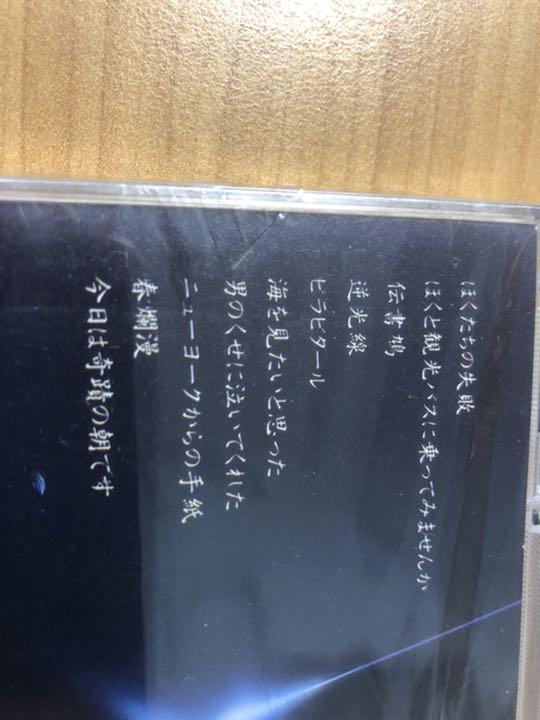 ぼくたちの失敗
ぼくと観光バスに乗ってみませんか
伝書鳩
逆光線
ピラビタール
海を見たいと思った
男のくせに泣いてくれた
ニューヨークからの手紙
春爛漫
今日は奇蹟の朝です